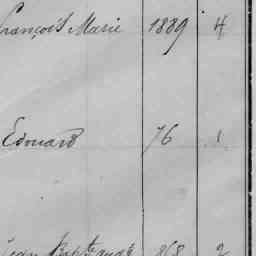 François Marie 1889 4
Edouard 76 1
Jean Bpte 868 2